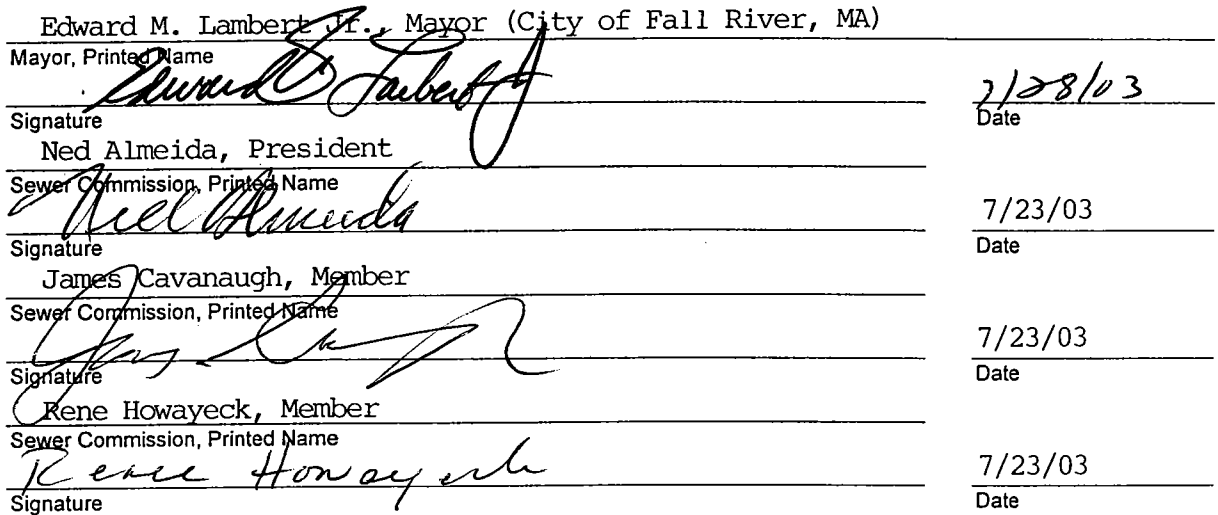 Edward M. Lambert Jr., Mayor (City of Fall River, MA)
Mayor, Printed Name
Edward Lambert Jr 7/28/03
Signature Date
Ned Almeida, President
Sewer Commission, Printed Name
Ned Almeida 7/23/03
Signature Date
James Cavanaugh, Member
Sewer Commission, Printed Name
7/23/03
Signature Date
Rene Howayeck, Member
Sewer Commission, Printed Name
Renee Howayeck 7/23/03
Signature Date